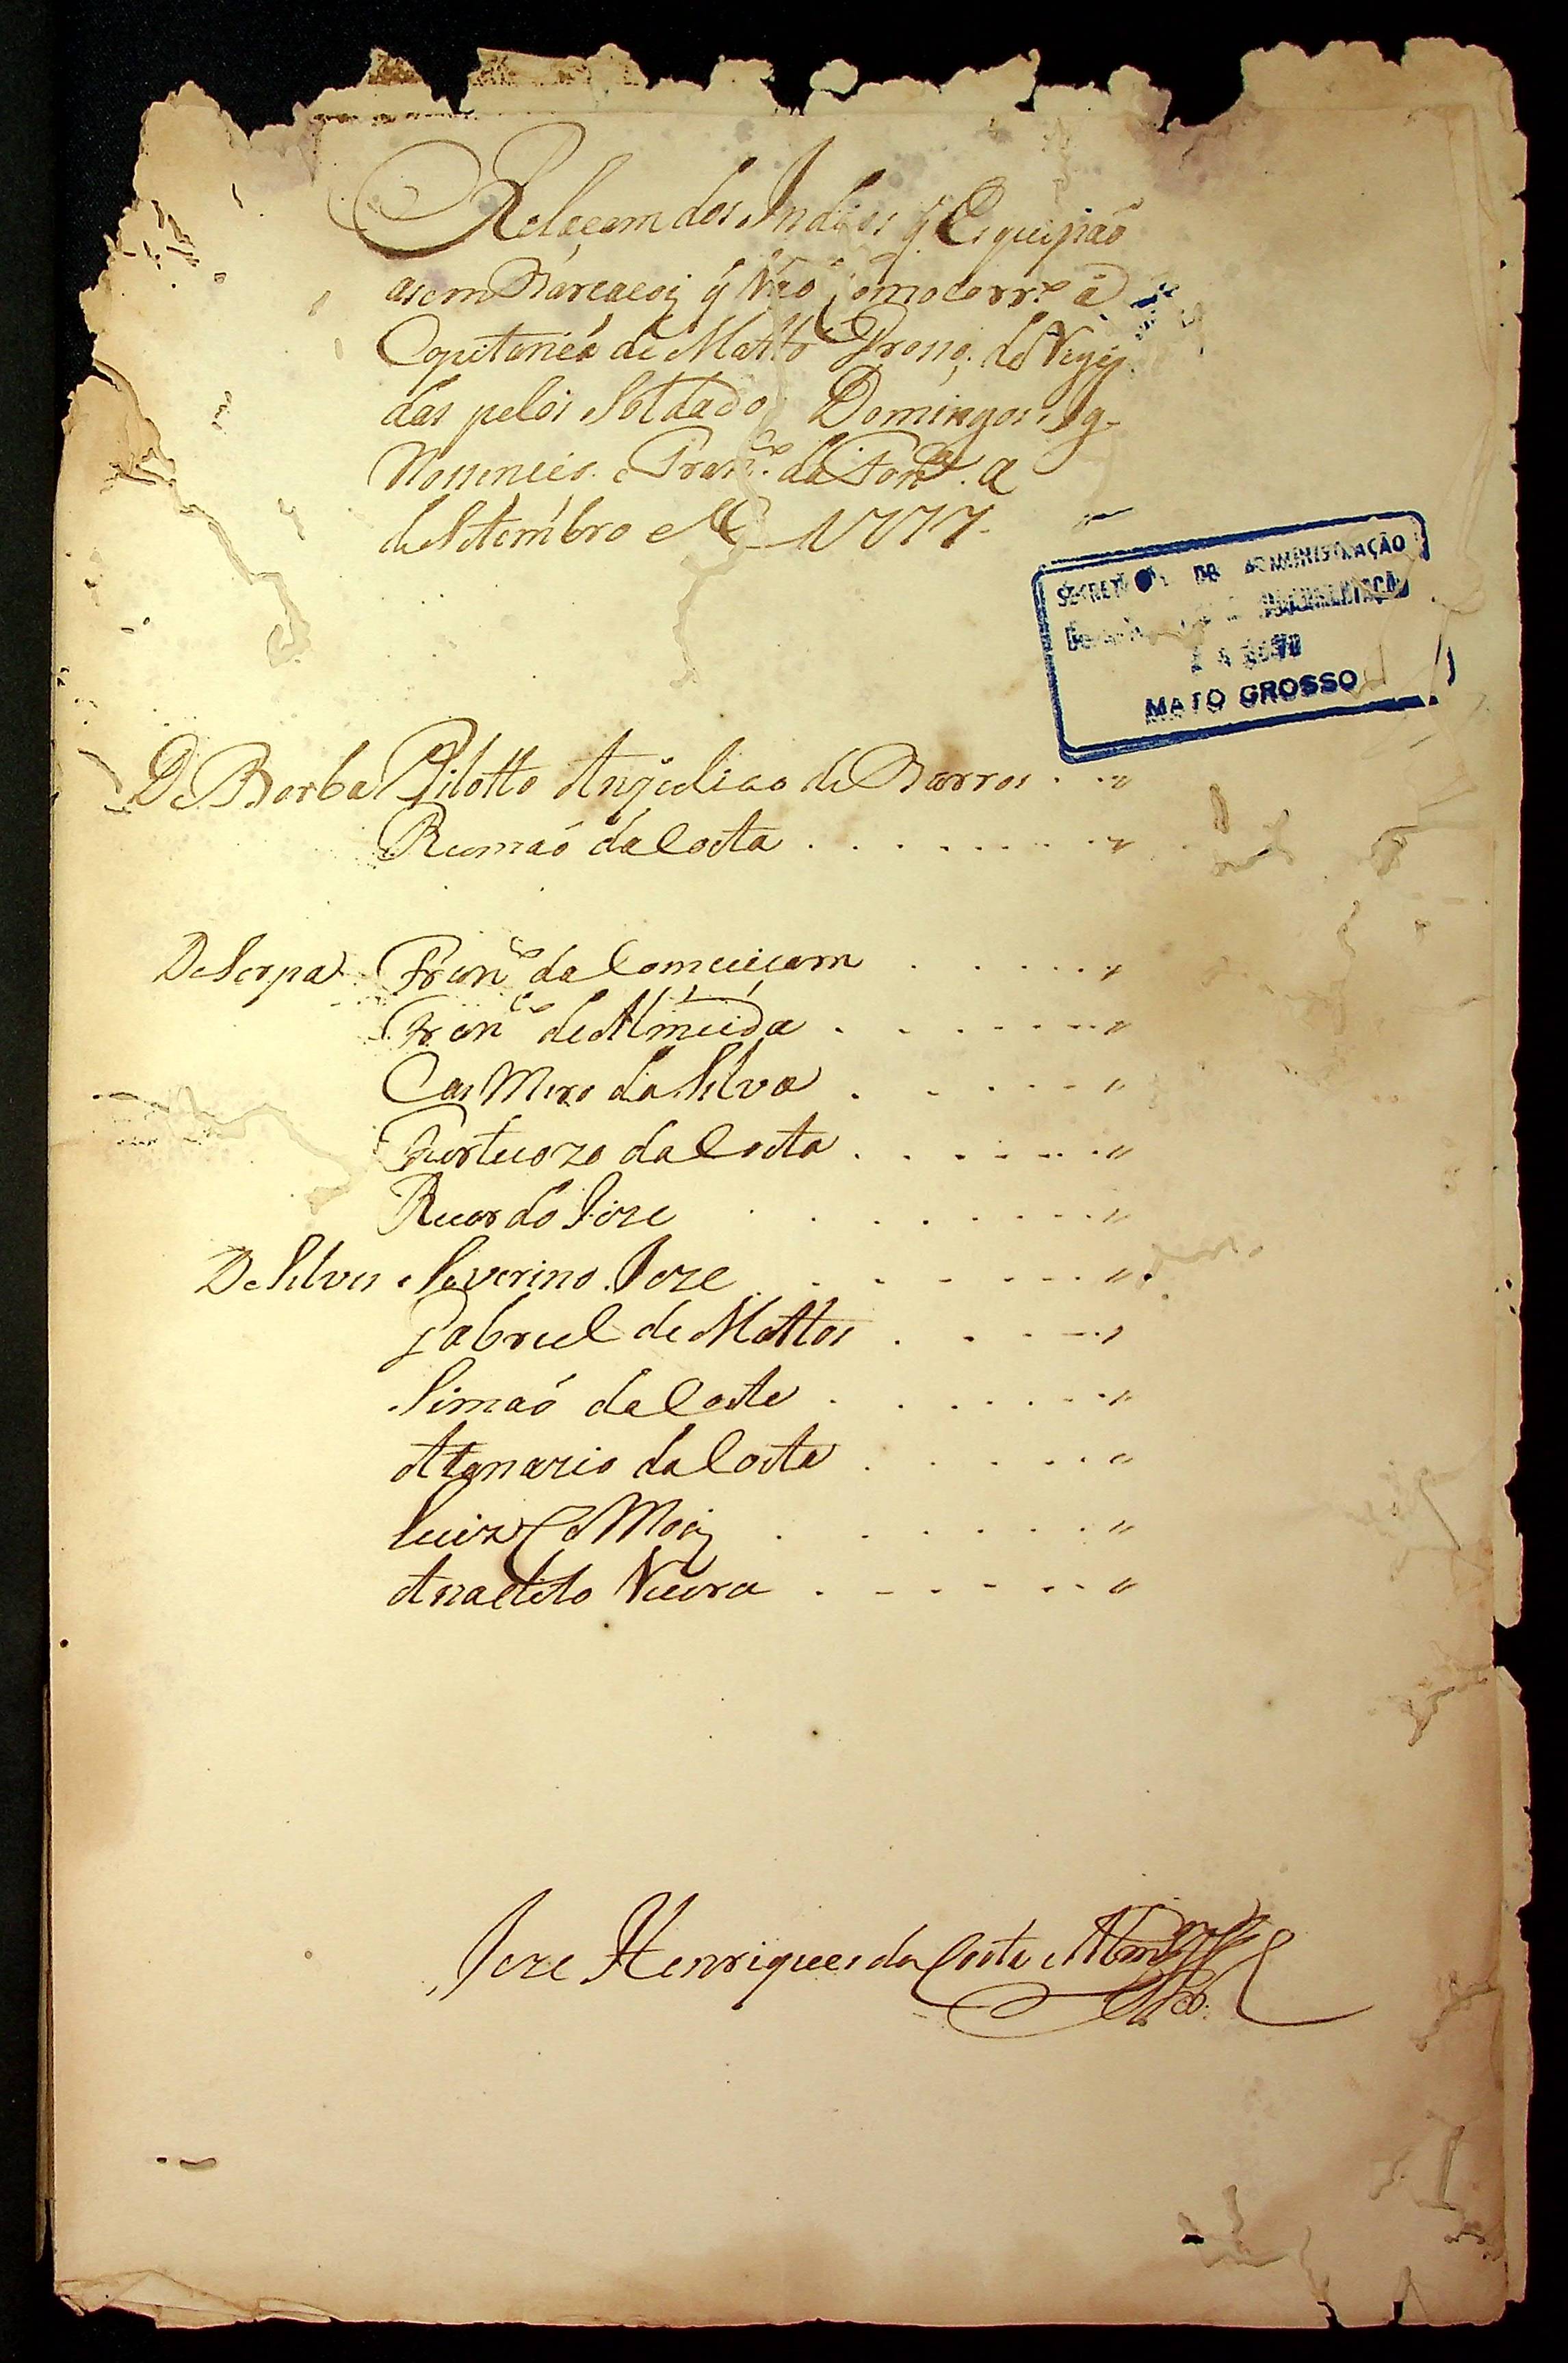 Relaçam dos Indios q̃ Esquipaõ
as em Barcacoiz q̃ Vaõ Com o corr.º á
Capitania de Matto Groso. do Vigiz
das pelos Soldados Domingos Ig-
nosencio. e Fran.co da Fon.ca a
de Setembro de 1777.
SECRET DE ADMINISTRAÇÃO
DOCUMENTAÇÃO
MATO GROSSO
De Borba Pilotto Angelico de Barros
Rumaõ da Costa
De Serpa Fran.co da Comceiçam
Fran.co de Almeida
Casmiro da Silva
Furtuozo da Costa
Ricardo Joze
De Silves Severino Joze
Gabriel de Mattos
Simaõ da Costa
Atanazio da Costa
Luiz de Moriz
Anacleto Vieira
Joze Henriques da Costa e Alm.da